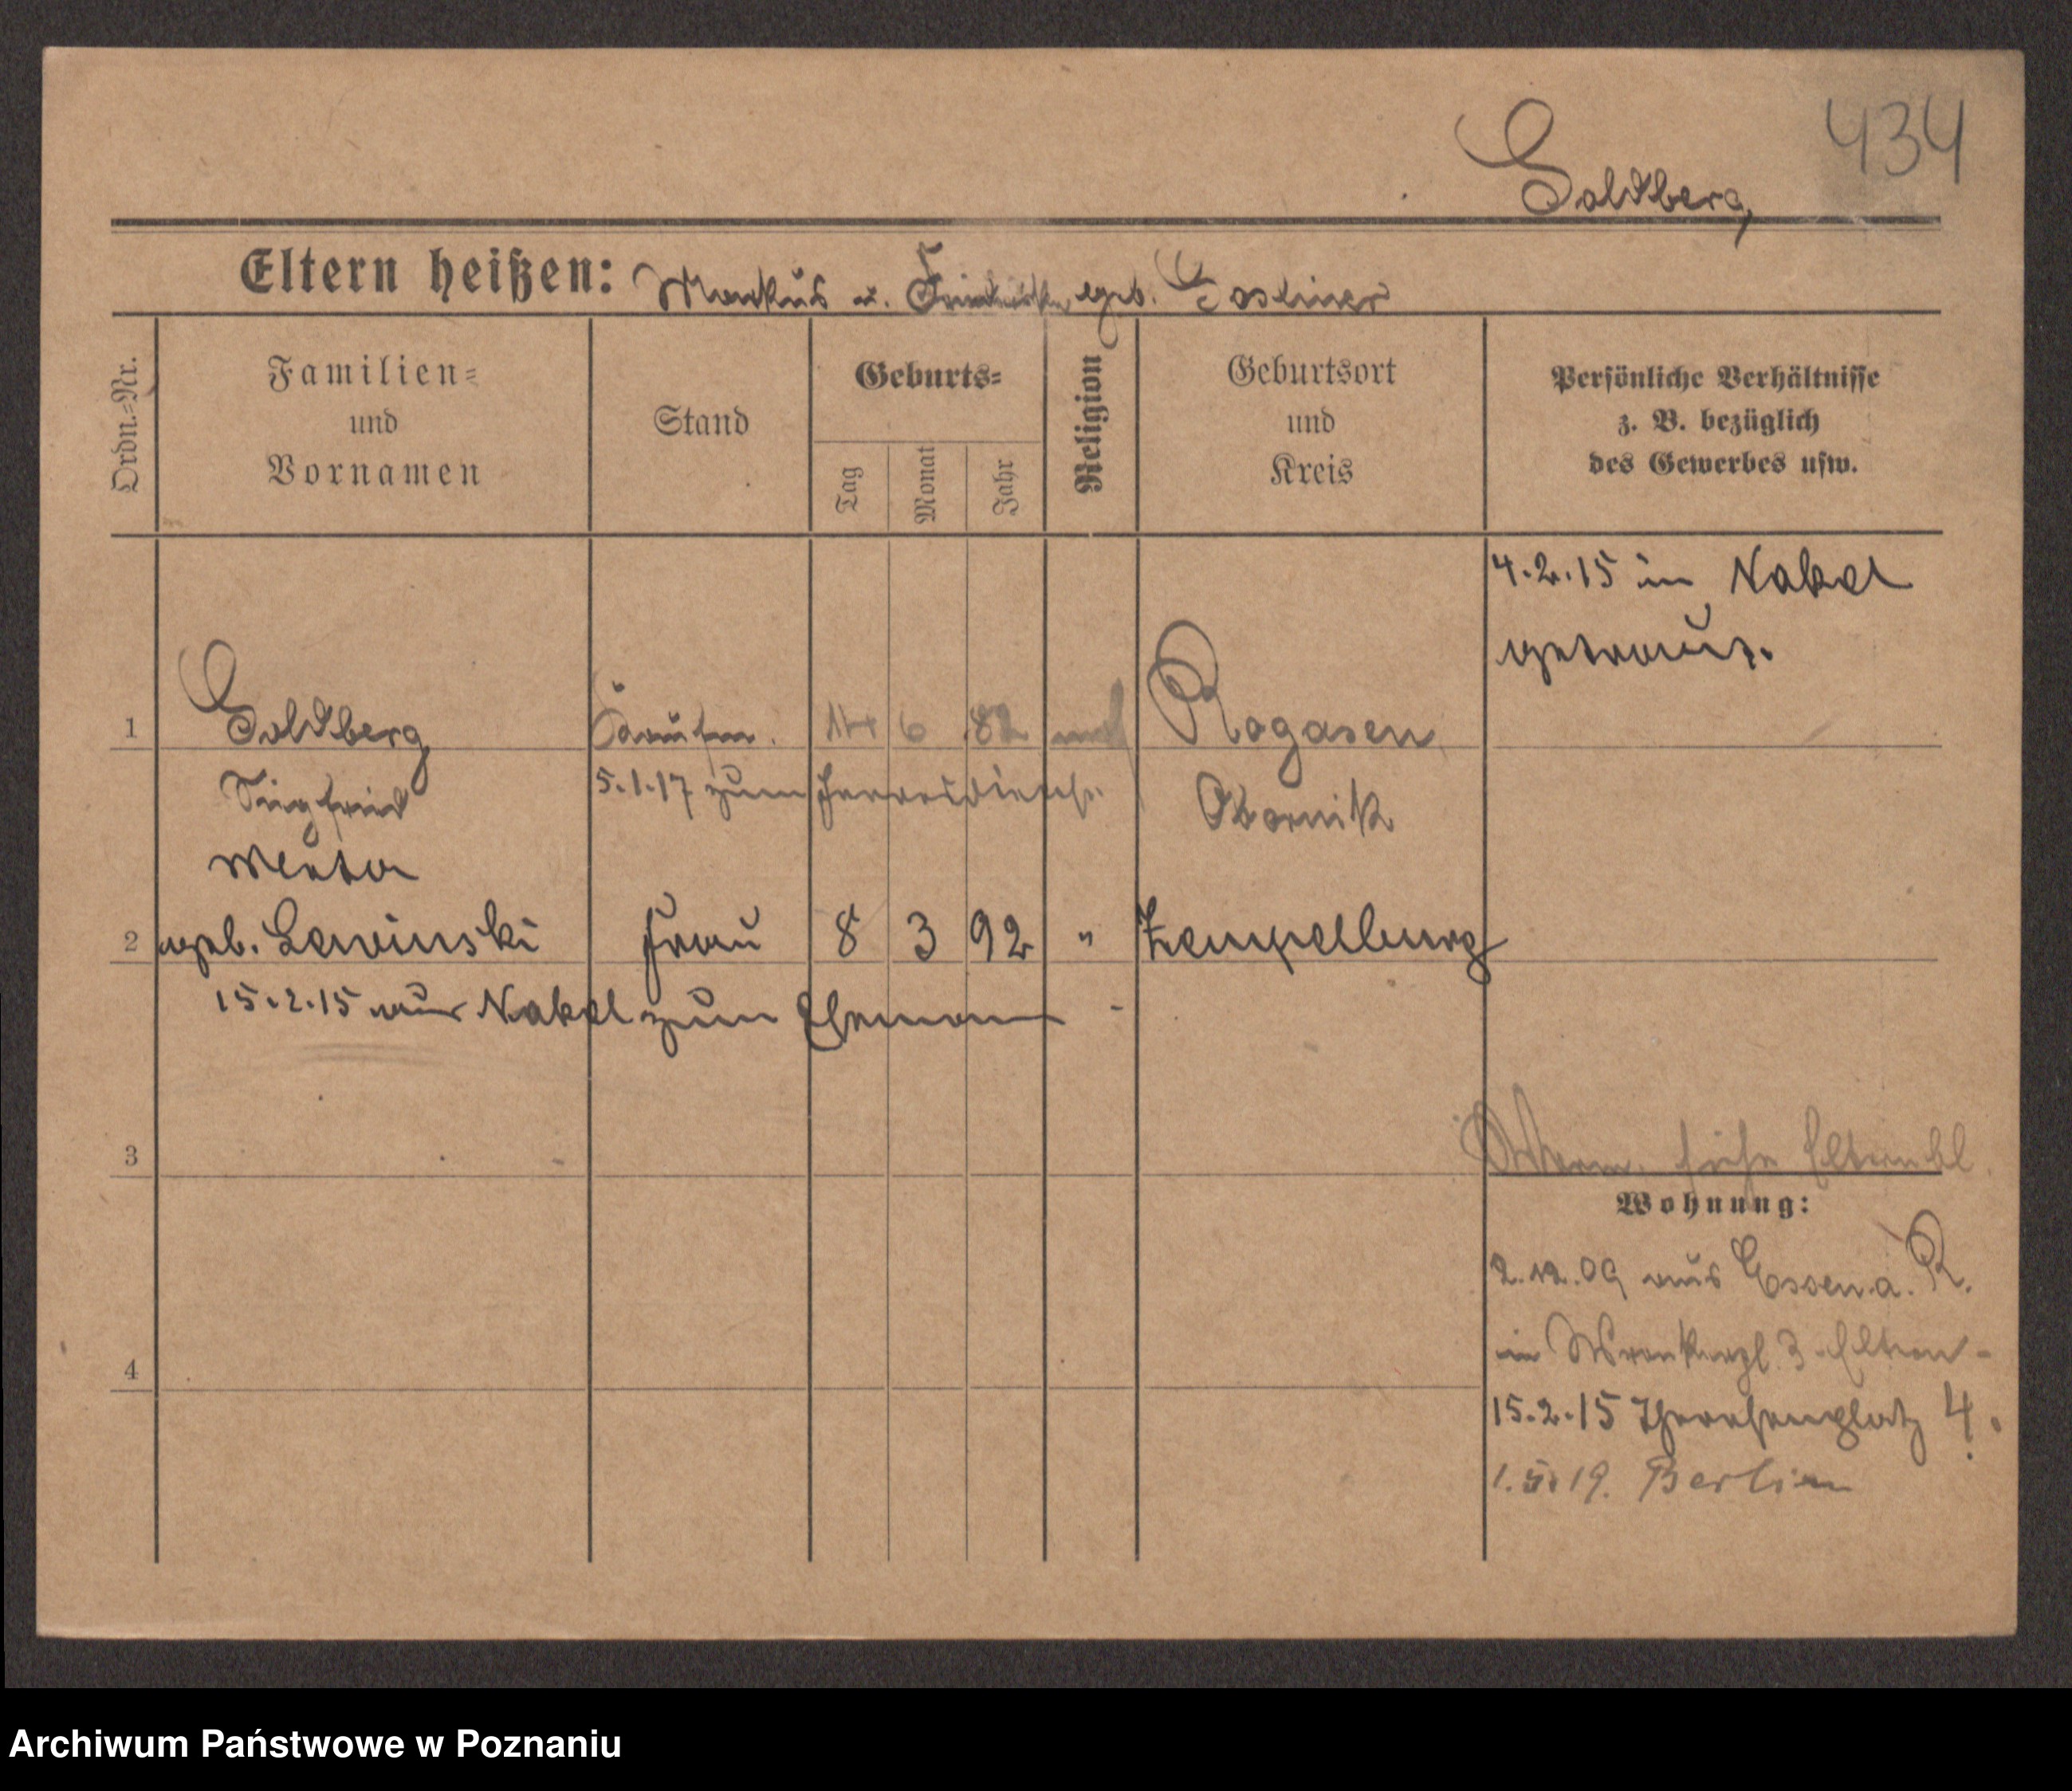 434
Goldberg
Eltern heißen: Markus u. Friederike geb. Gosliner
Ordn.=Nr.
Familien=
und
Vornamen
Stand
Geburts=
Tag
Monat
Jahr
Religion
Geburtsort
und
Kreis
Persönliche Verhältnisse
z. B. bezüglich
des Gewerbes usw.
4.2.15 in Nakel
getraut.
1 Goldberg Kaufm. 14 6 82 mos Rogasen
Siegfried 5.1.17 zum Heeresdienst. Obornik
Meta
2 geb. Lewinski Frau 8 3 92 " Zempelburg
15.2.15 aus Nakel zum Ehemann
3
siehe Elternbl.
Wohnung:
2.12.09 aus Essen a. R.
in Wronkerpl. 3 Eltern
15.2.15 Theresenplatz 4.
1.5.19. Berlin
4
Archiwum Państwowe w Poznaniu